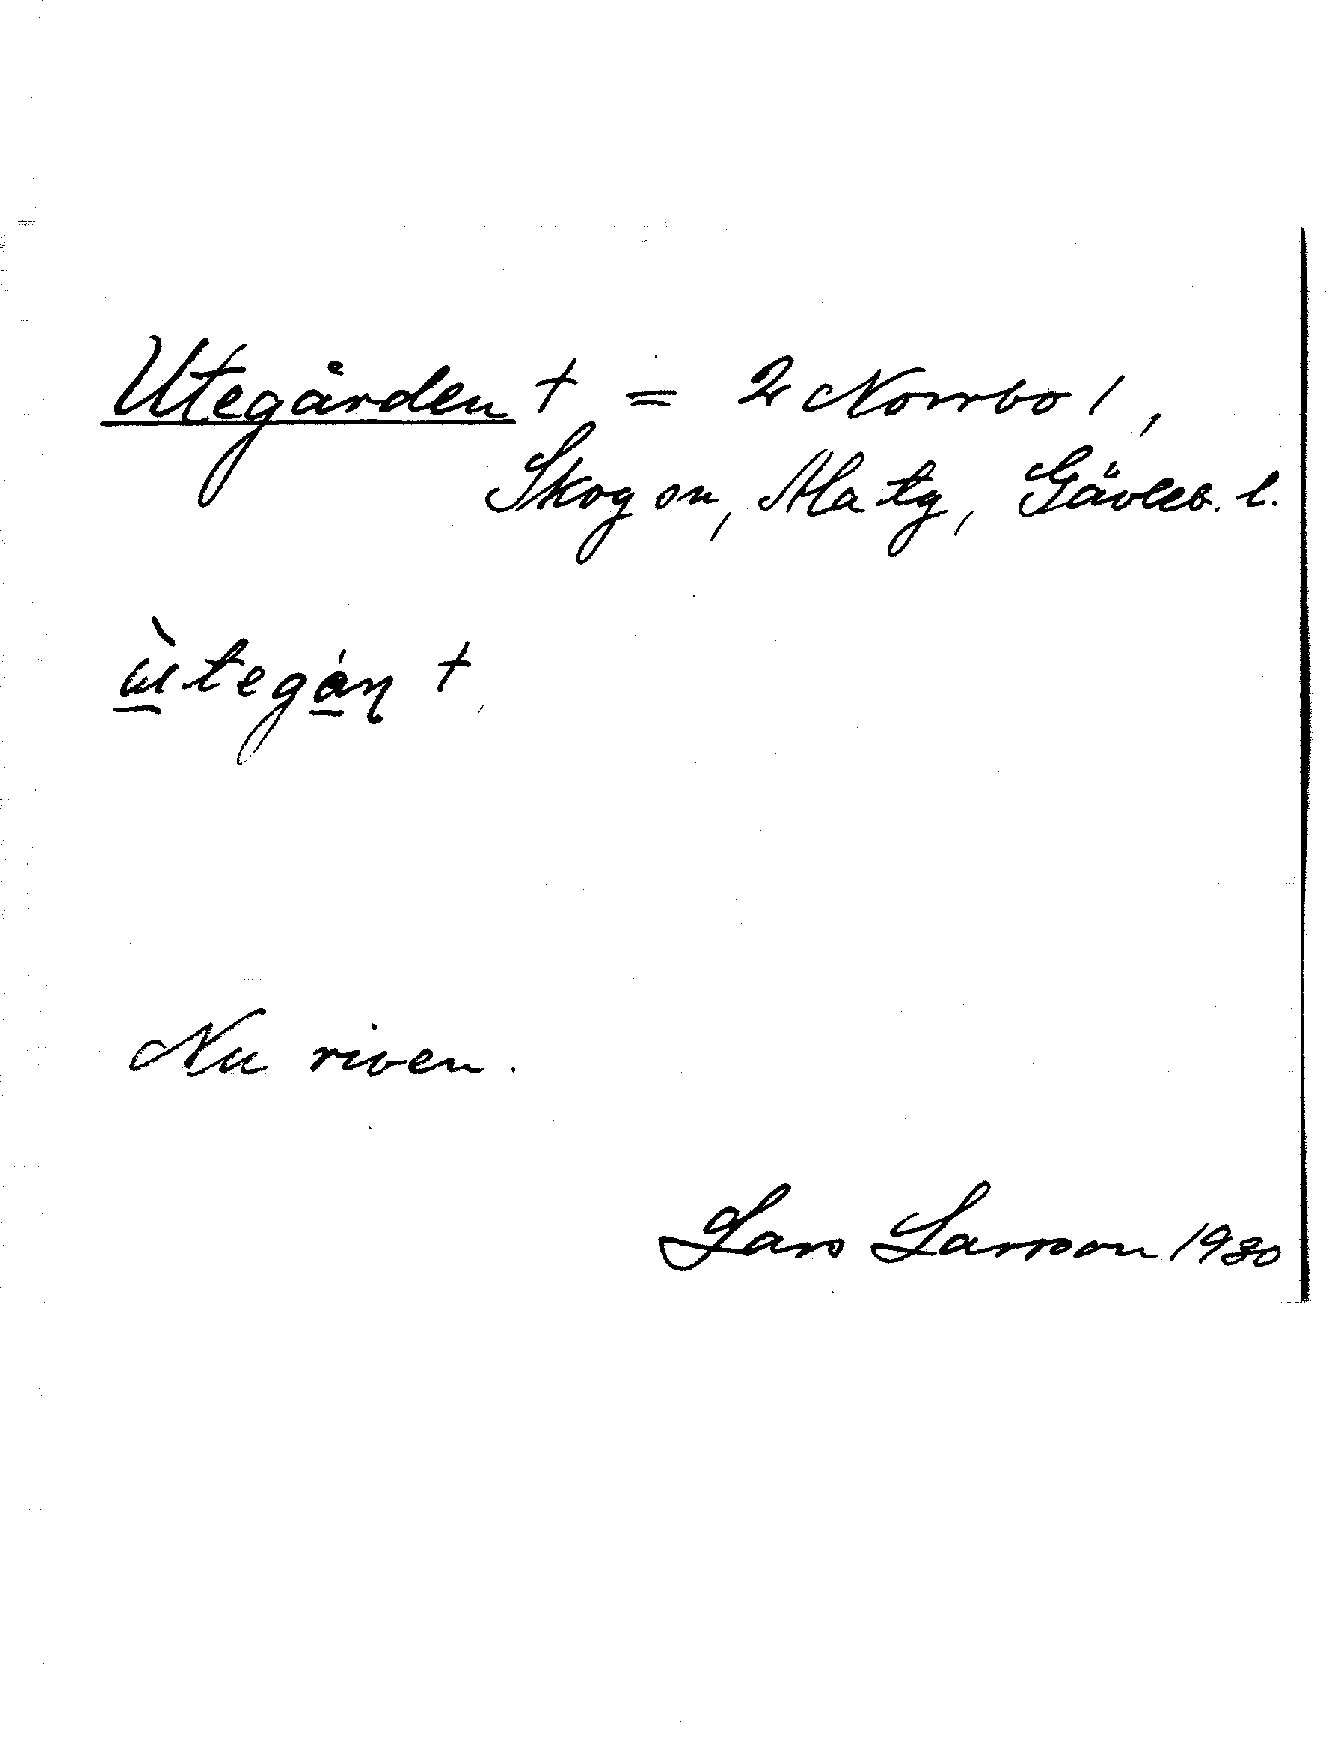 Utegården † = 2 Norrbo 1,
Skog sn, Ala tg, Gävleb. l.
ùtegán †
Nu riven.
Lars Larsson 1930